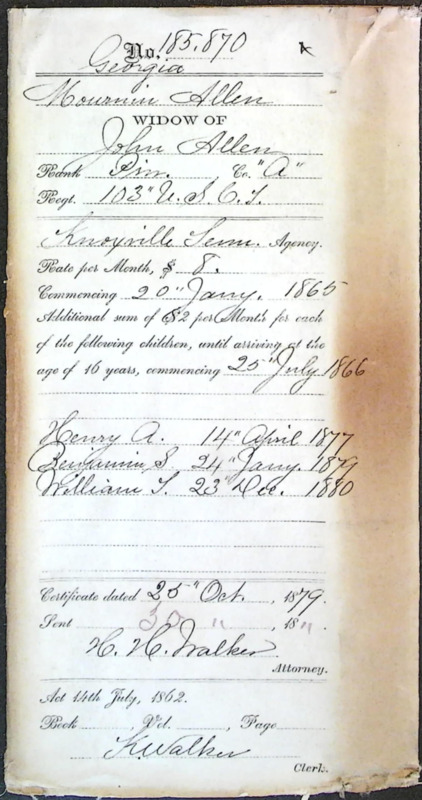 No. 185,870
Georgia
Mournin Allen
WIDOW OF
John Allen
Rank Priv. , Co. "A"
Regt. 103" U.S.C.T.
Knoxville Tenn. Agency.
Rate per Month, $ 8.
Commencing 20" Jany. 1865
Additional sum of $2 per Month for each
of the following children, until arriving at the
age of 16 years, commencing 25" July 1866
Henry A. 14" April 1877
Benjamin S. 24" Jany. 1879
William T. 23" Dec. 1880
Certificate dated 25" Oct. , 1879.
Sent 30 " , 18 "
H. H. Walker
Attorney.
Act 14th July, 1862.
Book , Vol. , Page
K Walker
Clerk.